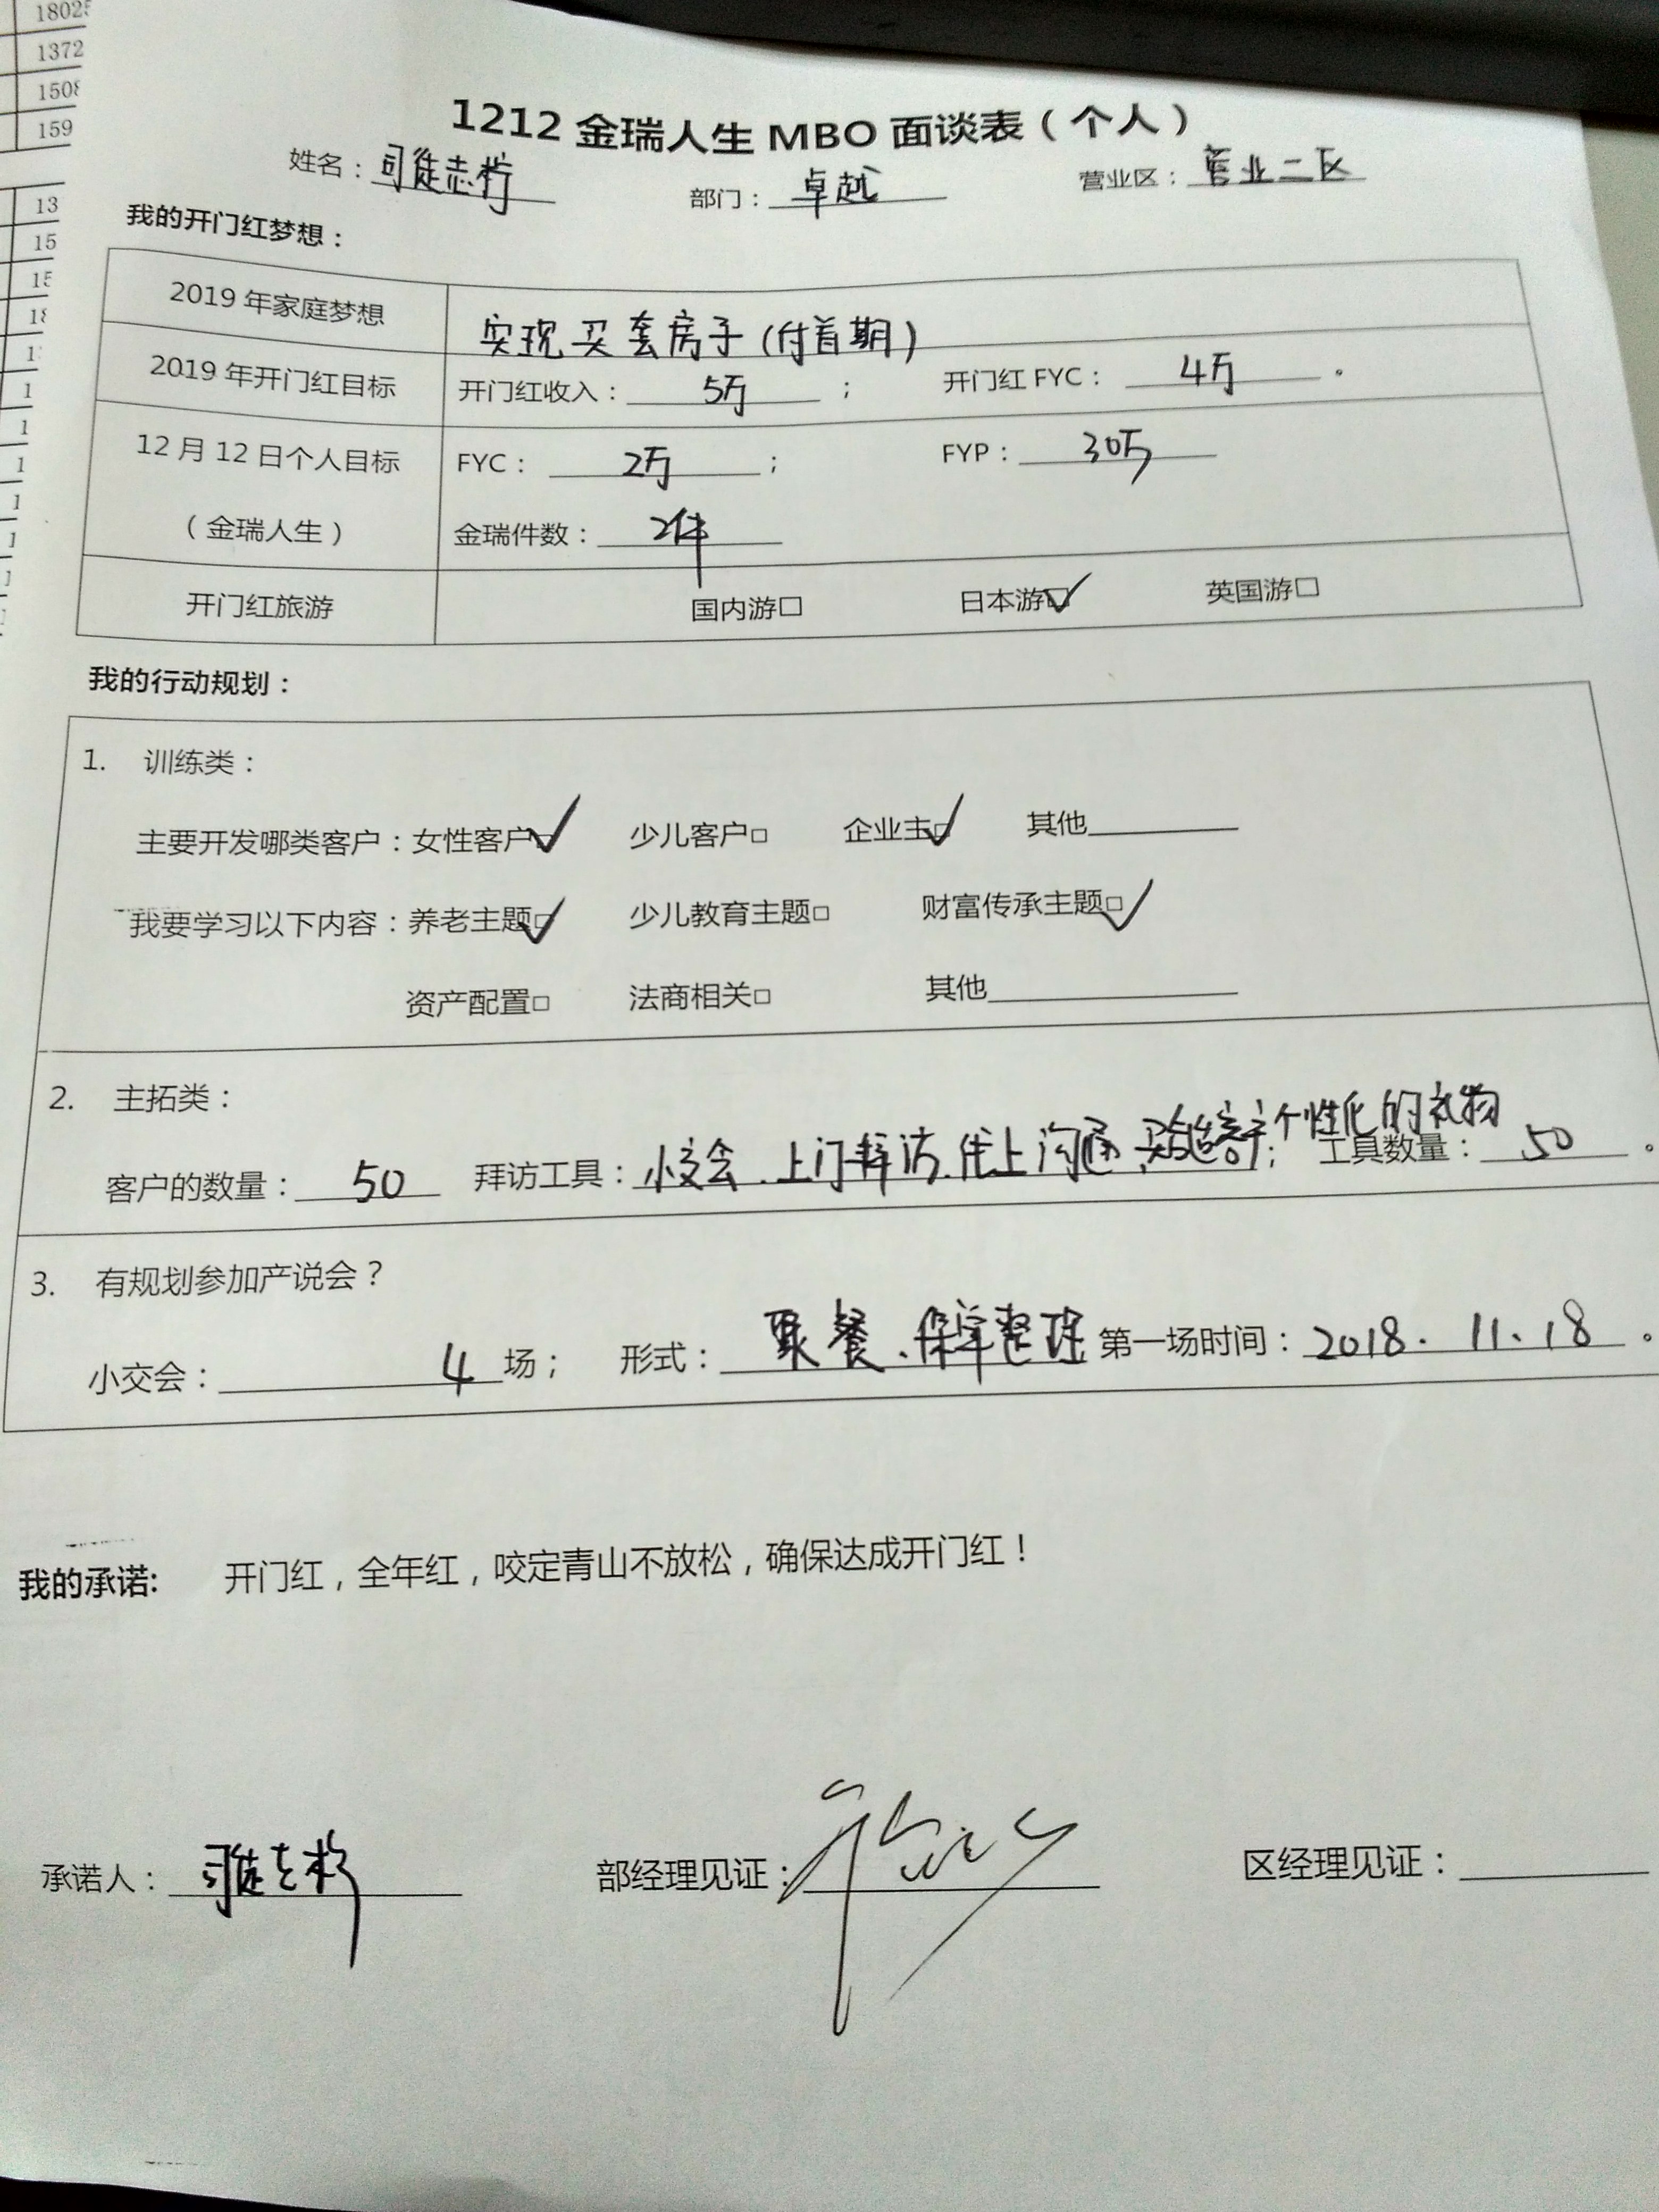 18025
1372
1508
159
13
15
1212 金瑞人生 MBO 面谈表（个人）
姓名：司徒志柠 部门：卓越 营业区：营业二区
我的开门红梦想：
2019 年家庭梦想 实现买套房子(付首期)
2019 年开门红目标 开门红收入：5万； 开门红 FYC：4万。
12 月 12 日个人目标 FYC：2万； FYP：30万
（金瑞人生） 金瑞件数：2件
开门红旅游 国内游□ 日本游☑ 英国游□
我的行动规划：
1. 训练类：
主要开发哪类客户：女性客户☑ 少儿客户□ 企业主☑ 其他
我要学习以下内容：养老主题☑ 少儿教育主题□ 财富传承主题☑
资产配置□ 法商相关□ 其他
2. 主拓类：
客户的数量：50 拜访工具：小交会、上门拜访、线上沟通、客户个性化的礼物； 工具数量：50。
3. 有规划参加产说会？
小交会：4场； 形式：聚餐、保单整理 第一场时间：2018. 11. 18。
我的承诺: 开门红，全年红，咬定青山不放松，确保达成开门红！
承诺人：司徒志柠 部经理见证： 区经理见证：